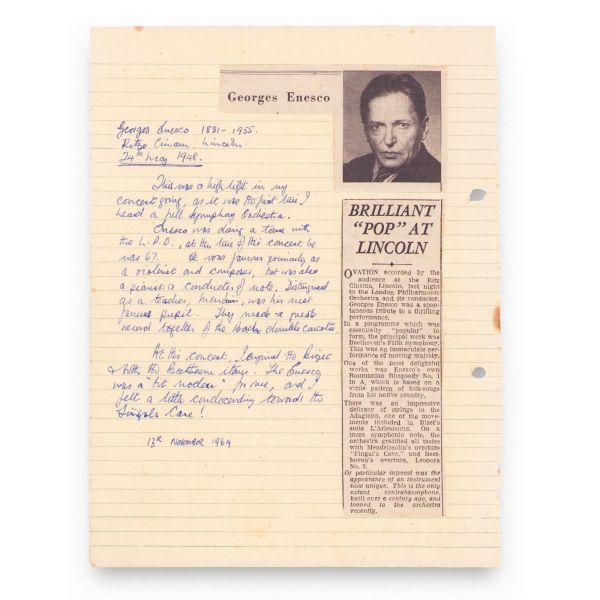 Georges Enesco
Georges Enesco 1881-1955.
Ritz Cinema, Lincoln.
24th May 1948.
This was a high light in my
concert going, as it was the first time I
heard a full symphony orchestra.
Enesco was doing a tour with
the L.P.O., at the time of this concert he
was 67. He was famous primarily as
a violinist and composer, but was also
a pianist & conductor of note, distinguished
as a teacher, Menuhin, was his most
famous pupil. They made a
record together of the Bach double concerto
At this concert, I enjoyed the Bizet
& both the Beethoven items. The Enesco
was a "bit modern" for me, and I
felt a little condescending towards the
Fingals Cave!
13th November 1969
BRILLIANT
"POP" AT
LINCOLN
OVATION accorded by the
audience at the Ritz
Cinema, Lincoln, last night
to the London Philharmonic
Orchestra and its conductor,
Georges Enesco was a spon-
taneous tribute to a thrilling
performance.
In a programme which was
essentially "popular" in
form, the principal work was
Beethoven's Fifth Symphony.
This was an immaculate per-
formance of moving majesty.
One of the most delightful
works was Enesco's own
Roumanian Rhapsody No. 1
in A, which is based on a
virile pattern of folk-songs
from his native country.
There was an impressive
delicacy of strings in the
Adagietto, one of the move-
ments included in Bizet's
suite L'Arlesienne. On a
more symphonic note, the
orchestra gratified all tastes
with Mendelssohn's overture
"Fingal's Cave," and Beet-
hoven's overture, Leonora
No. 3.
Of particular interest was the
appearance of an instrument
now unique. This is the only
extant contrabassophone,
built over a century ago, and
loaned to the orchestra
recently.